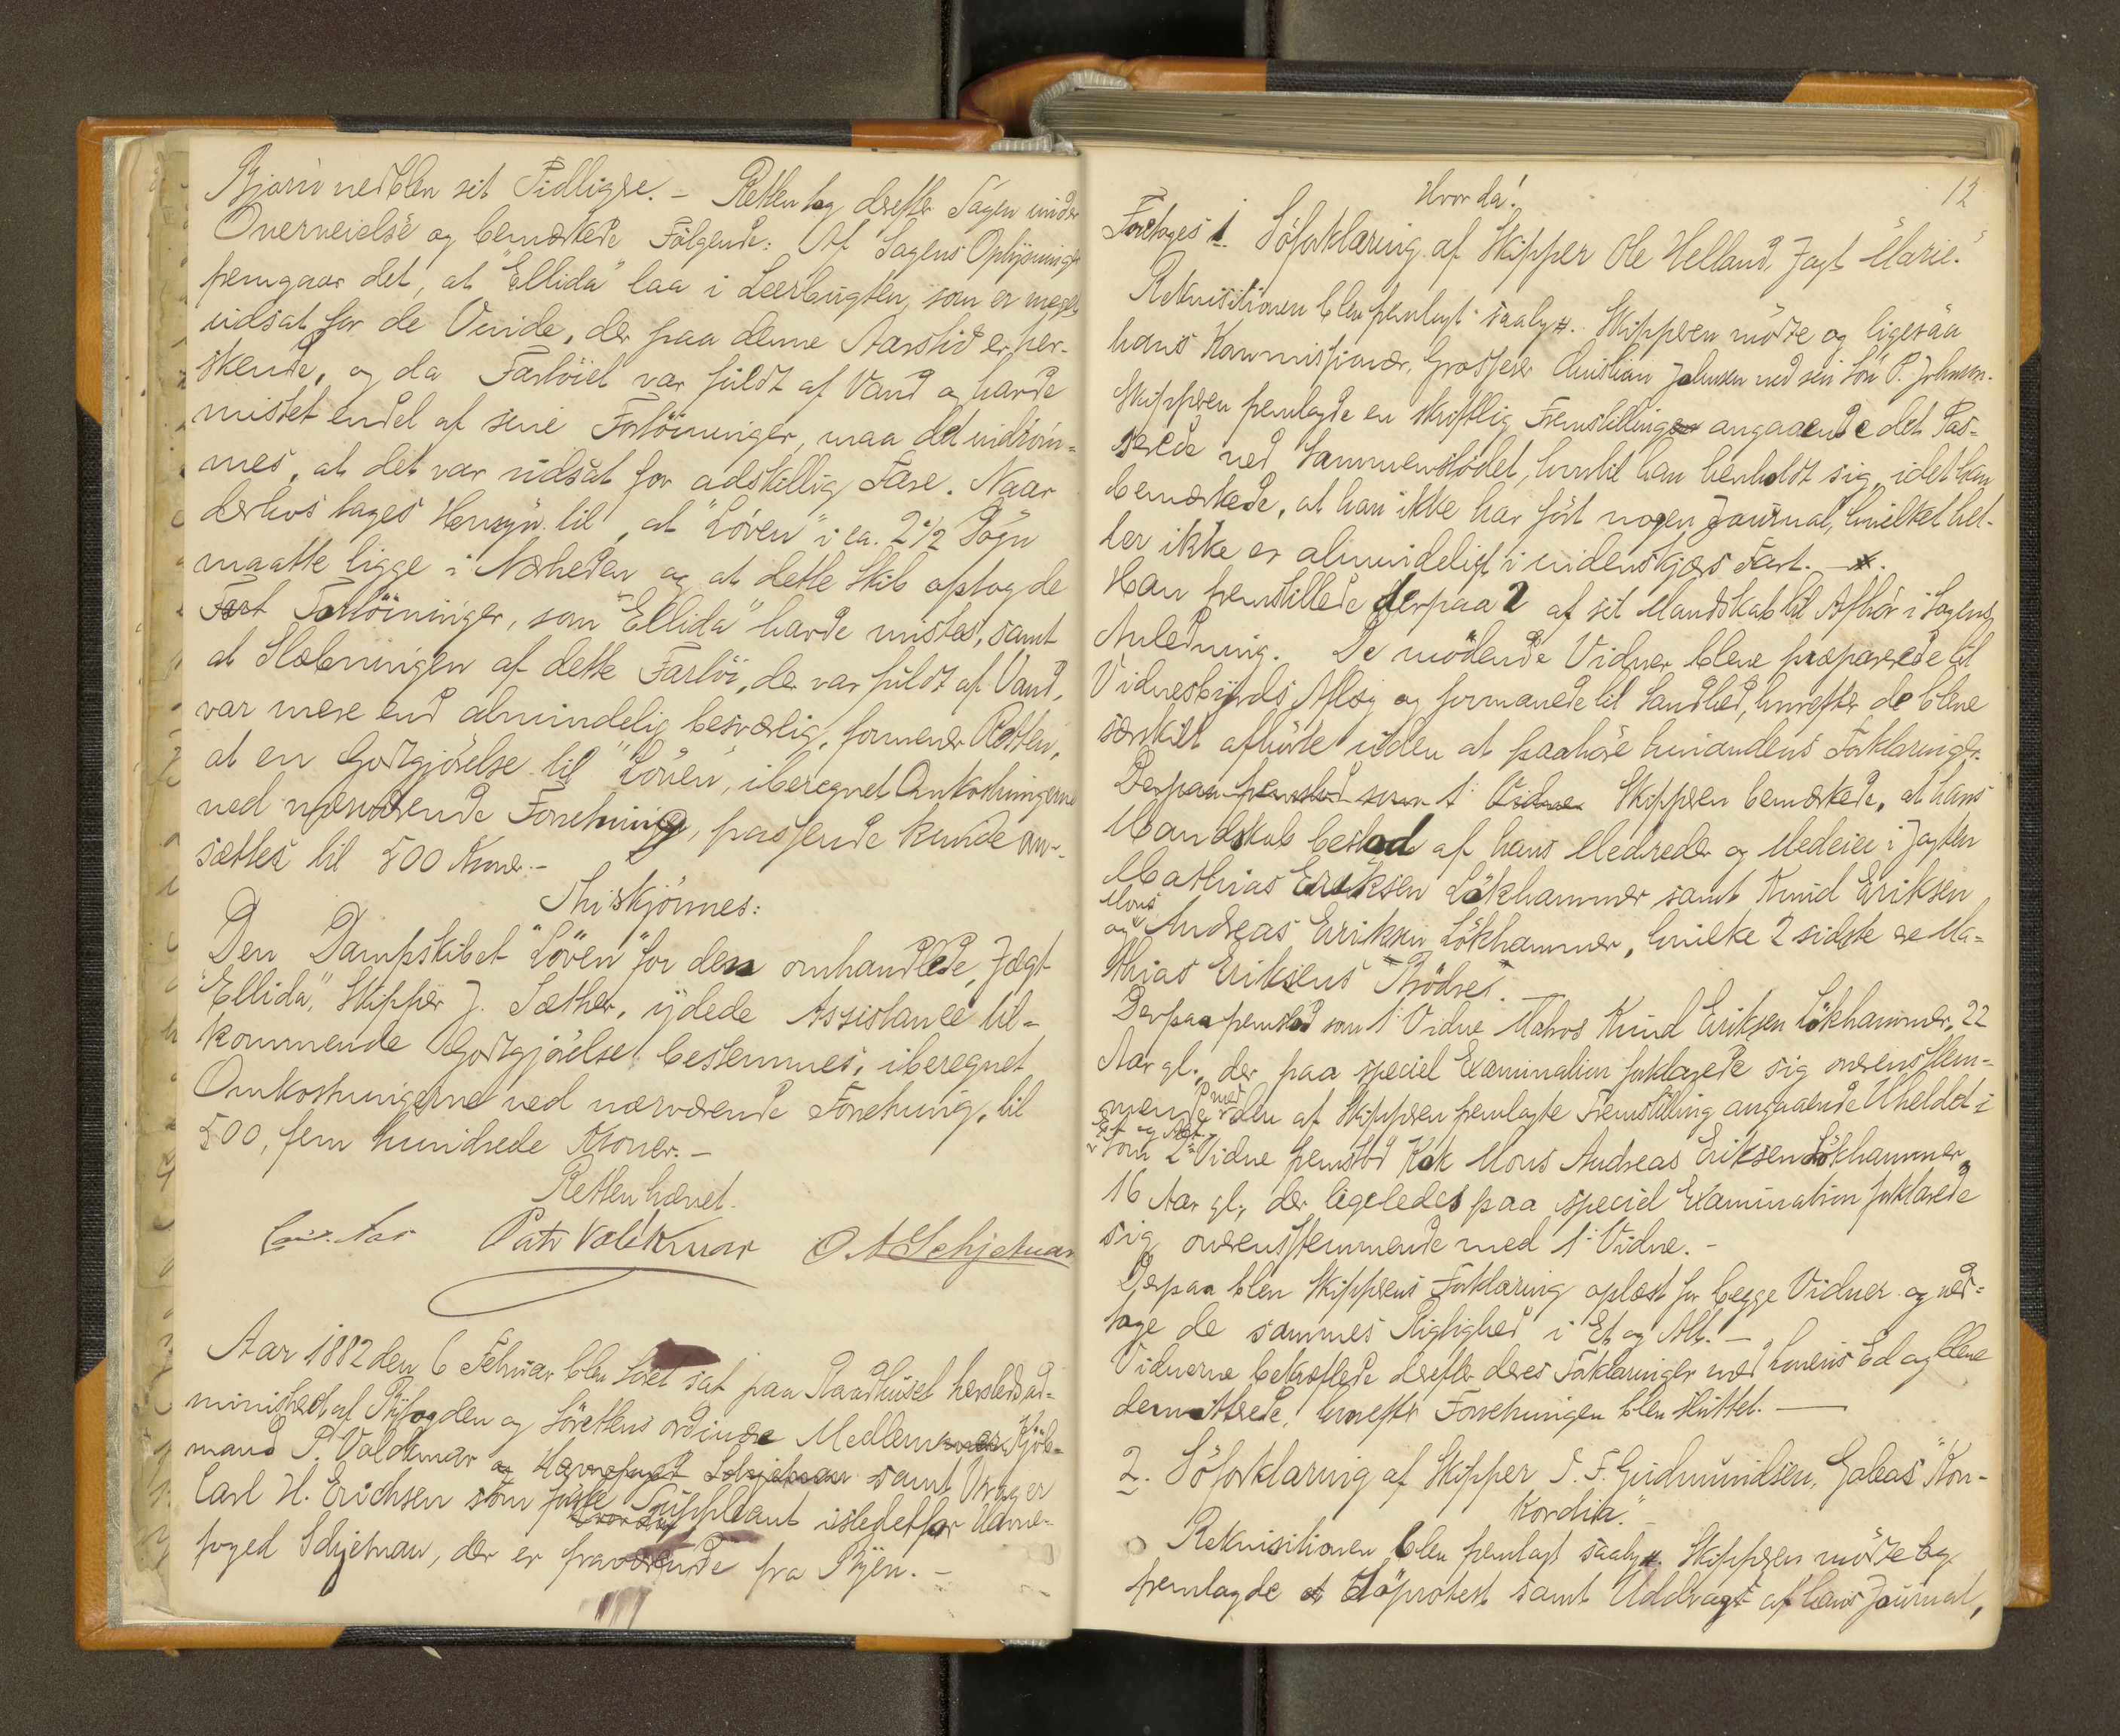 Bjarne nedblev sit Tidligere. – Retten tog derefter Sagen under
Overveielse og bemærkede Følgende: Af Sagens Oplysninger
fremgaar det, at "Ellida" laa i Leerbugten, som er meget
udsat for de Vinde, der paa denne Aarstid er her-
skende, og da Fartøiet var fuldt af Vand og havde
mistet endel af sine Fortøininger, maa det indrøm-
mes, at det var udsat for adskillig Fare. Naar
derhos tages Hensyn til, at "Løven" i ca. 2 1/2 Døgn
maatte ligge i Nærheden og at dette Skib optog de
Fort Fortøininger, som "Ellida" havde mistet, samt
at Slæbningen af dette Fartøi, der var fuldt af Vand,
var mere end almindelig besværlig, formener Retten,
at en Godtgjørelse til "Løven", iberegnet Omkostningerne
ved nærværende Forretning, passende kunde an-
sættes til 500 Kroner. –
Thi skjønnes:
Den Dampskibet "Löven" for den omhandlede, Jægt
"Ellida", Skipper J. Sæther, ydede Assistance til-
kommende Godtgjørelse bestemmes, iberegnet
Omkostningerne ved nærværende Forretning, til
500, fem hundrede Kroner. –
Retten hævet.
Patr Voldkmar O. A Schjetnan
Aar 1882 den 6 Februar blev Söret sat paa Raadhuset hersteds ad-
ministreret af Byfogden og Sörettens ordinære Medlemmer Kjöb-
mand P. Voldkmar og Havnefoged Schjetnan samt Vrager
Carl H. Erichsen som første Suppleant istedetfor Havne-
foged Schjetnan, der er fraværende fra Byen. –
12
Hvor da!
Foretoges 1. Söforklaring af Skipper Ole Helland, Jagt "Marie."
Rekvisitionen blev fremlagt saalyd. Skipperen mödte og ligesaa
hans Kommissionær, Grosserer Christian Johnsen ved sin Sön P. Johnsen.
Skipperen fremlagde en skriftlig Fremstilling angaaende det Pas-
serede ved Sammenstödet, hvortil han henholdt sig, idet han
bemærkede, at han ikke har fört nogen Journal, hvilket hel-
ler ikke er almindeligt i indenskjærs Fart. –
Han fremstillede derpaa 2 af sit Mandskab til Afhör i Sagens
Anledning. De mödende Vidner bleve præparerede til
Vidnesbyrds Aflæg og formanede til Sandhed, hvorefter de bleve
særskilt afhörte uden at paahöre hinandens Forklaringer.
Derpaa fremstod som 1' Vidne Skipperen bemærkede, at hans
Mandskab bestod af hans Medreder og Medeier i Jagten
Mathias Eriksen Lökhammer samt Knud Eriksen
Mons
og Andreas Eriksen Lökhammer, hvilke 2 sidste ere Ma-
thias Eriksens Brödre. –
Derpaa fremstod som 1' Vidne Matros Knud Eriksen Lökhammer, 22
Aar gl., der paa speciel Examination forklarede sig overensstem-
mende med den af Skipperen fremlagte Fremstilling angaaende Uheldet i
Et og Alt.
Som 2' Vidne fremstod Kok Mons Andreas Eriksen Lökhammer,
16 Aar gl., der ligeledes paa speciel Examination forklarede
sig overensstemmende med 1' Vidne. –
Derpaa blev Skipperens Forklaring oplæst for begge Vidner og ved-
toge de sammes Rigtighed i Et og Alt. –
Vidnerne bekræftede derefter deres Forklaringer med hveris Ed og bleve
demitterede, hvorefter Forretningen blev sluttet. –
2. Söforklaring af Skipper S. F. Gudmundsen, Galeas "Kon-
kordia". –
Rekvisitionen blev fremlagt saalyd. Skipperen mödte og
fremlagde et Söprotest samt Uddragt af hans Journal,